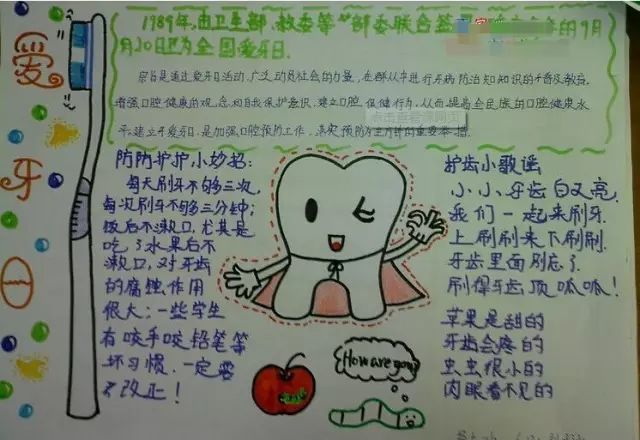 爱
牙
日
1989年,由卫生部、教委等 部委联合签 的9月
月20日定为全国爱牙日.
宗旨是通过爱牙日活动,广泛动员社会的力量,在群众中进行牙病防治知识的普及教育,
增强口腔健康的观念和自我保护意识,建立口腔保健行为,从而提高全民族的口腔健康水
平.建立牙爱牙日,是加强口腔预防工作,落实预防为主方针的重要举措.
点击查看源网页
防防护护小妙招:
每天刷牙不够三次,
每次刷牙不够三分钟;
饭后不漱口,尤其是
吃了水果后不
漱口,对牙齿
的腐蚀作用
很大;一些学生
有咬手咬铅笔等
坏习惯.一定要
改正!
护齿小歌谣
小小牙齿白又亮,
我们一起来刷牙.
上刷刷来下刷刷.
牙齿里面别忘了.
刷得牙齿顶呱呱!
苹果是甜的
牙齿会疼的
虫虫很小的
肉眼看不见的
How are you?